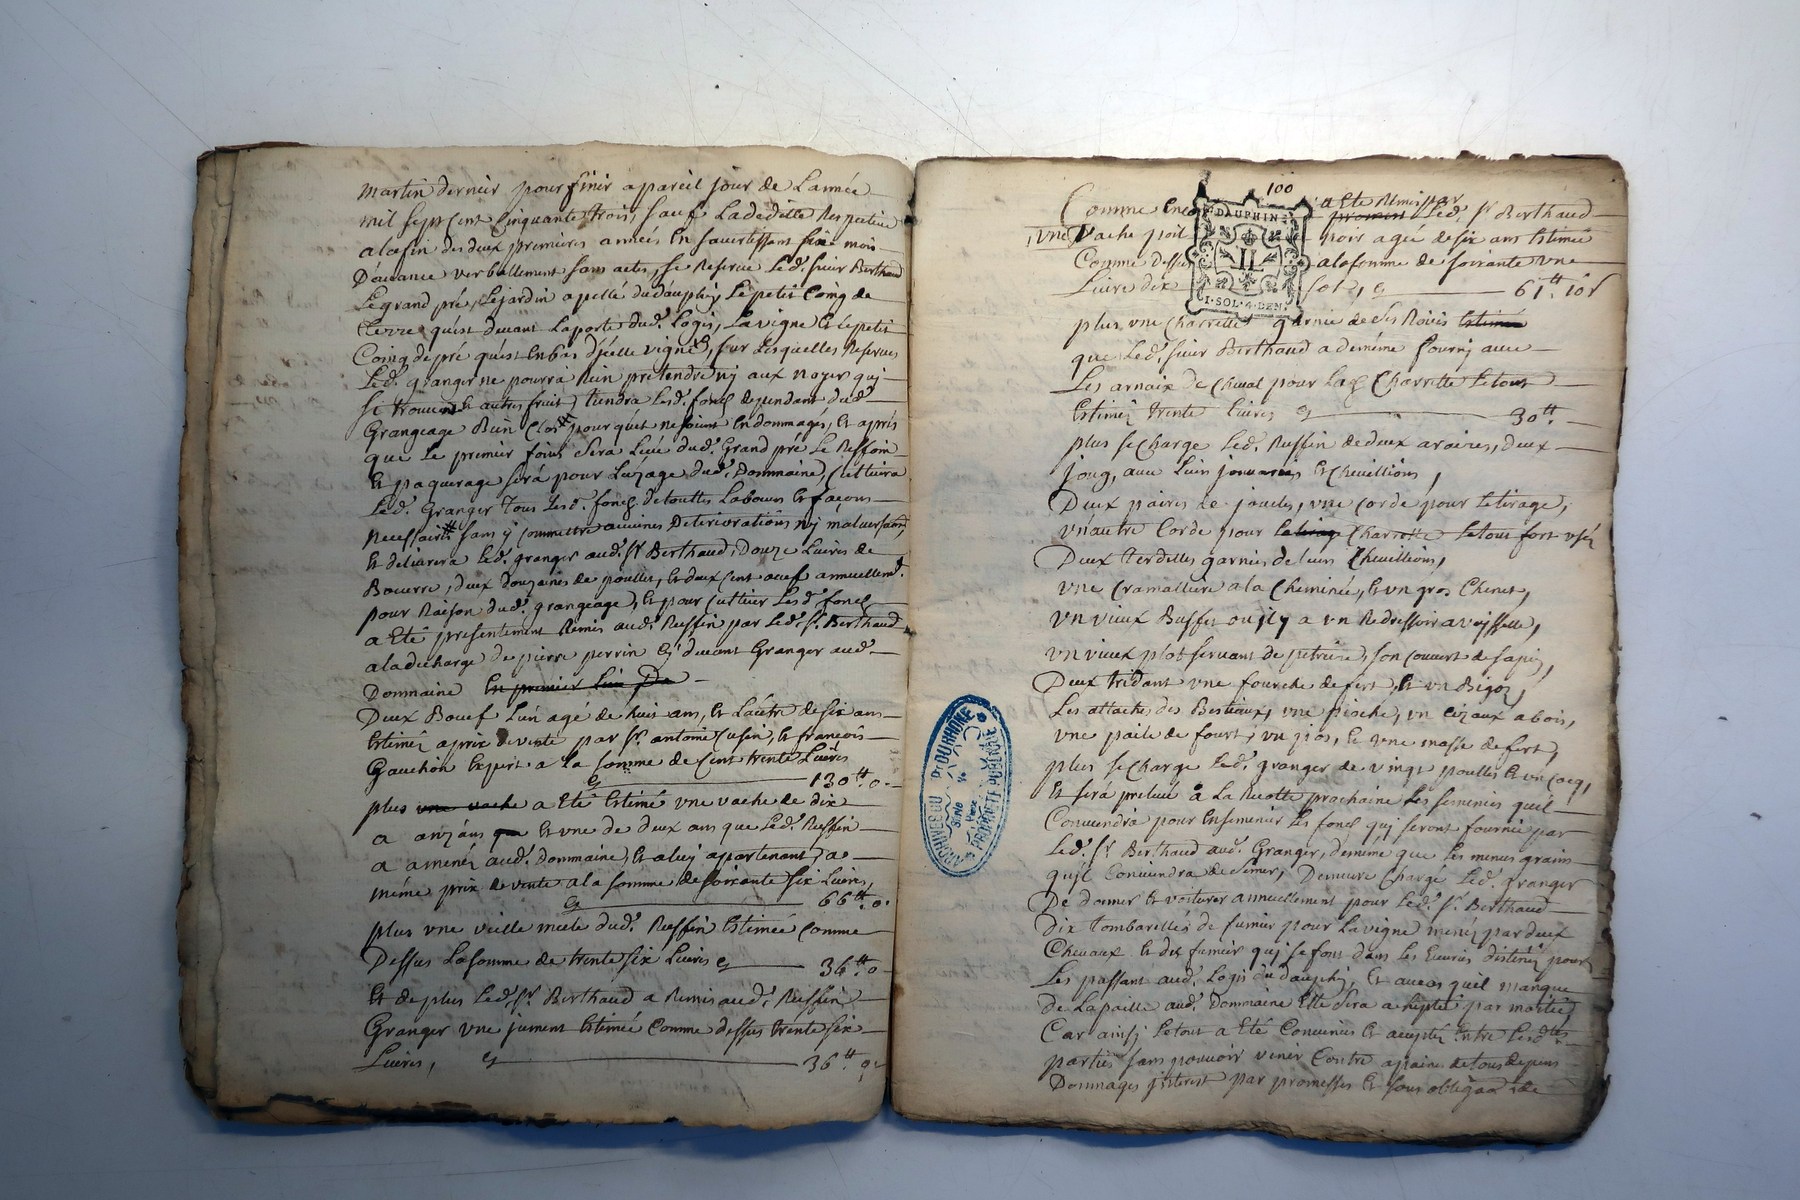 martin dernier pour finir a pareil jour de Lannée
mil sept Cent Cinquante trois, sauf Ladeditte Respective
alafin des deux premieres années En savertissant six mois
Davance verballement sans actes, se Reserve Led. sieur Berthaud
Le grand pré, Le jardin apellé du dauphin, Le petit Coing de
terre quest devant La porte dud. Logis, La vigne Et Le petit
Coing de pré quest En bas dicelle vigne, sur Lesquelles Reserves
Led. granger ne pourra Rien pretendre ny aux noyer qui
se trouvent Et autres fruit, tiendra Lesd. fond dependant dud.
Grangeage Bien Clos pour quet ne soient Endommagés, Et aprés
que Le premier foins sera Levé dud. Grand pré Le Reffoin
Et paquerage será pour Luzage dud. Dommaine, Cultivra
Led. Granger tous Lesd. fond de touttes Labours Et façons
necessair sans y Commettre aucunes Deteriorations ny malversaons,
Et delivrera Led. granger aud. Sr. Berthaud, Douze Livres de
Beurre, deux douzaines de poullet, Et deux Cent oeuf annuellemt.
pour Raison dud. grangeage, Et pour Cultiver Lesd. fond
a Eté presentement Remis aud. Ruffin par Led. Sr. Berthaud
ala decharge de pierre perrin cy devant Granger aud.
Dommaine
Deux Boeuf Lún agé de huit ans, Et Lautre de six ans
Estimez a prix de vente par Sr. antoine Cusin, Et francois
Gauchon Expert a la somme de Cent trente Livres
Cy 130 tt. 0.
plus une vache a Eté Estimé vne vache de dix
a onz ans Et vne de deux ans que Led. Ruffin
a amenéz aud. Dommaine, Et a luy appartenant, a
même prix de vente ala somme de soixante six Livres,
Cy 66 tt. 0.
plus vne vieille meule dud. Ruffin Estimée Comme
Dessus La somme de trente six Livres Cy 36 tt. 0
Et de plus Led. Sr. Berthaud a Remis aud. Ruffin
Granger vne jument Estimée Comme dessus trente six
Livres, Cy 36 tt. 0.
100
DAUPHINE
I·SOL·4·DEN
Comme a Eté Remis par
promis Led. Sr. Berthaud
vne Vache poil noir agée de six ans Estimée
Comme Dessus ala somme de soixante vne
Livre dix sol, Cy 61 tt. 10 s
plus vne Charrette garnie de ses Roües Estimée
que Led. sieur Berthaud a deméme fourny avec
Les arnaix de Cheval pour Lad. Charrette Le tout
Estiméz trente Livres Cy 30 tt.
plus se Charge Led. Ruffin de deux araires, deux
joug, avec Leurs Et Chevillions,
Deux paires de joucles, vne Corde pour Le tirage,
vn autre Corde pour Le tirage Charrette Le tout fort vséz
Deux terdelles garnies de Leurs Chevillions,
vne Cramalliere a la Cheminée, Et vn gros Chenet,
vn vieux Buffet ou il y a vn Redressoir a veysselle,
vn vieux plot servant de petriere, son Couvert de sapin,
Deux tridant vne fourche de fert, Et vn Bigot,
Les attaches des Bestiaux, vne pioche, vn cizeaux a bois,
vne paile de fourt, vn pios, Et vne masse de fert,
plus se Charge Led. granger de vingt poulles Et vn Coeq,
Et será prelevé a La Recolte prochaine Les semences quil
Conviendra pour Ensemencer Les fond qui seront fournie par
Led. Sr. Berthaud aud. Granger, demême que Les menus grains
quil Conviendra de semer, Demeure Chargé Led. granger
De donner Et voiturer annuellement pour Led. Sr. Berthaud
dix tombarellés de fumier pour La vigne menéz par deux
Chevaux Et du fumier qui se font dans Les Ecuries distinéz pour
Les passant aud. Logis du dauphin, Et au cas quil manque
de La paille aud. Dommaine Elle será achepté par moitié,
Car ainsy Le tout a Eté Convenues Et accepté Entre Lesd. tes.
parties sans pouvoir venir Contre a paine de tous depens
Dommages jnterest par promesses Et sous obligaon de
ARCHIVES DU PT DU RHONE
PROPRIETE PUBLIQUE